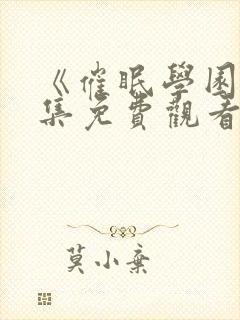 《催眠學園
集免費觀看
莫小棄